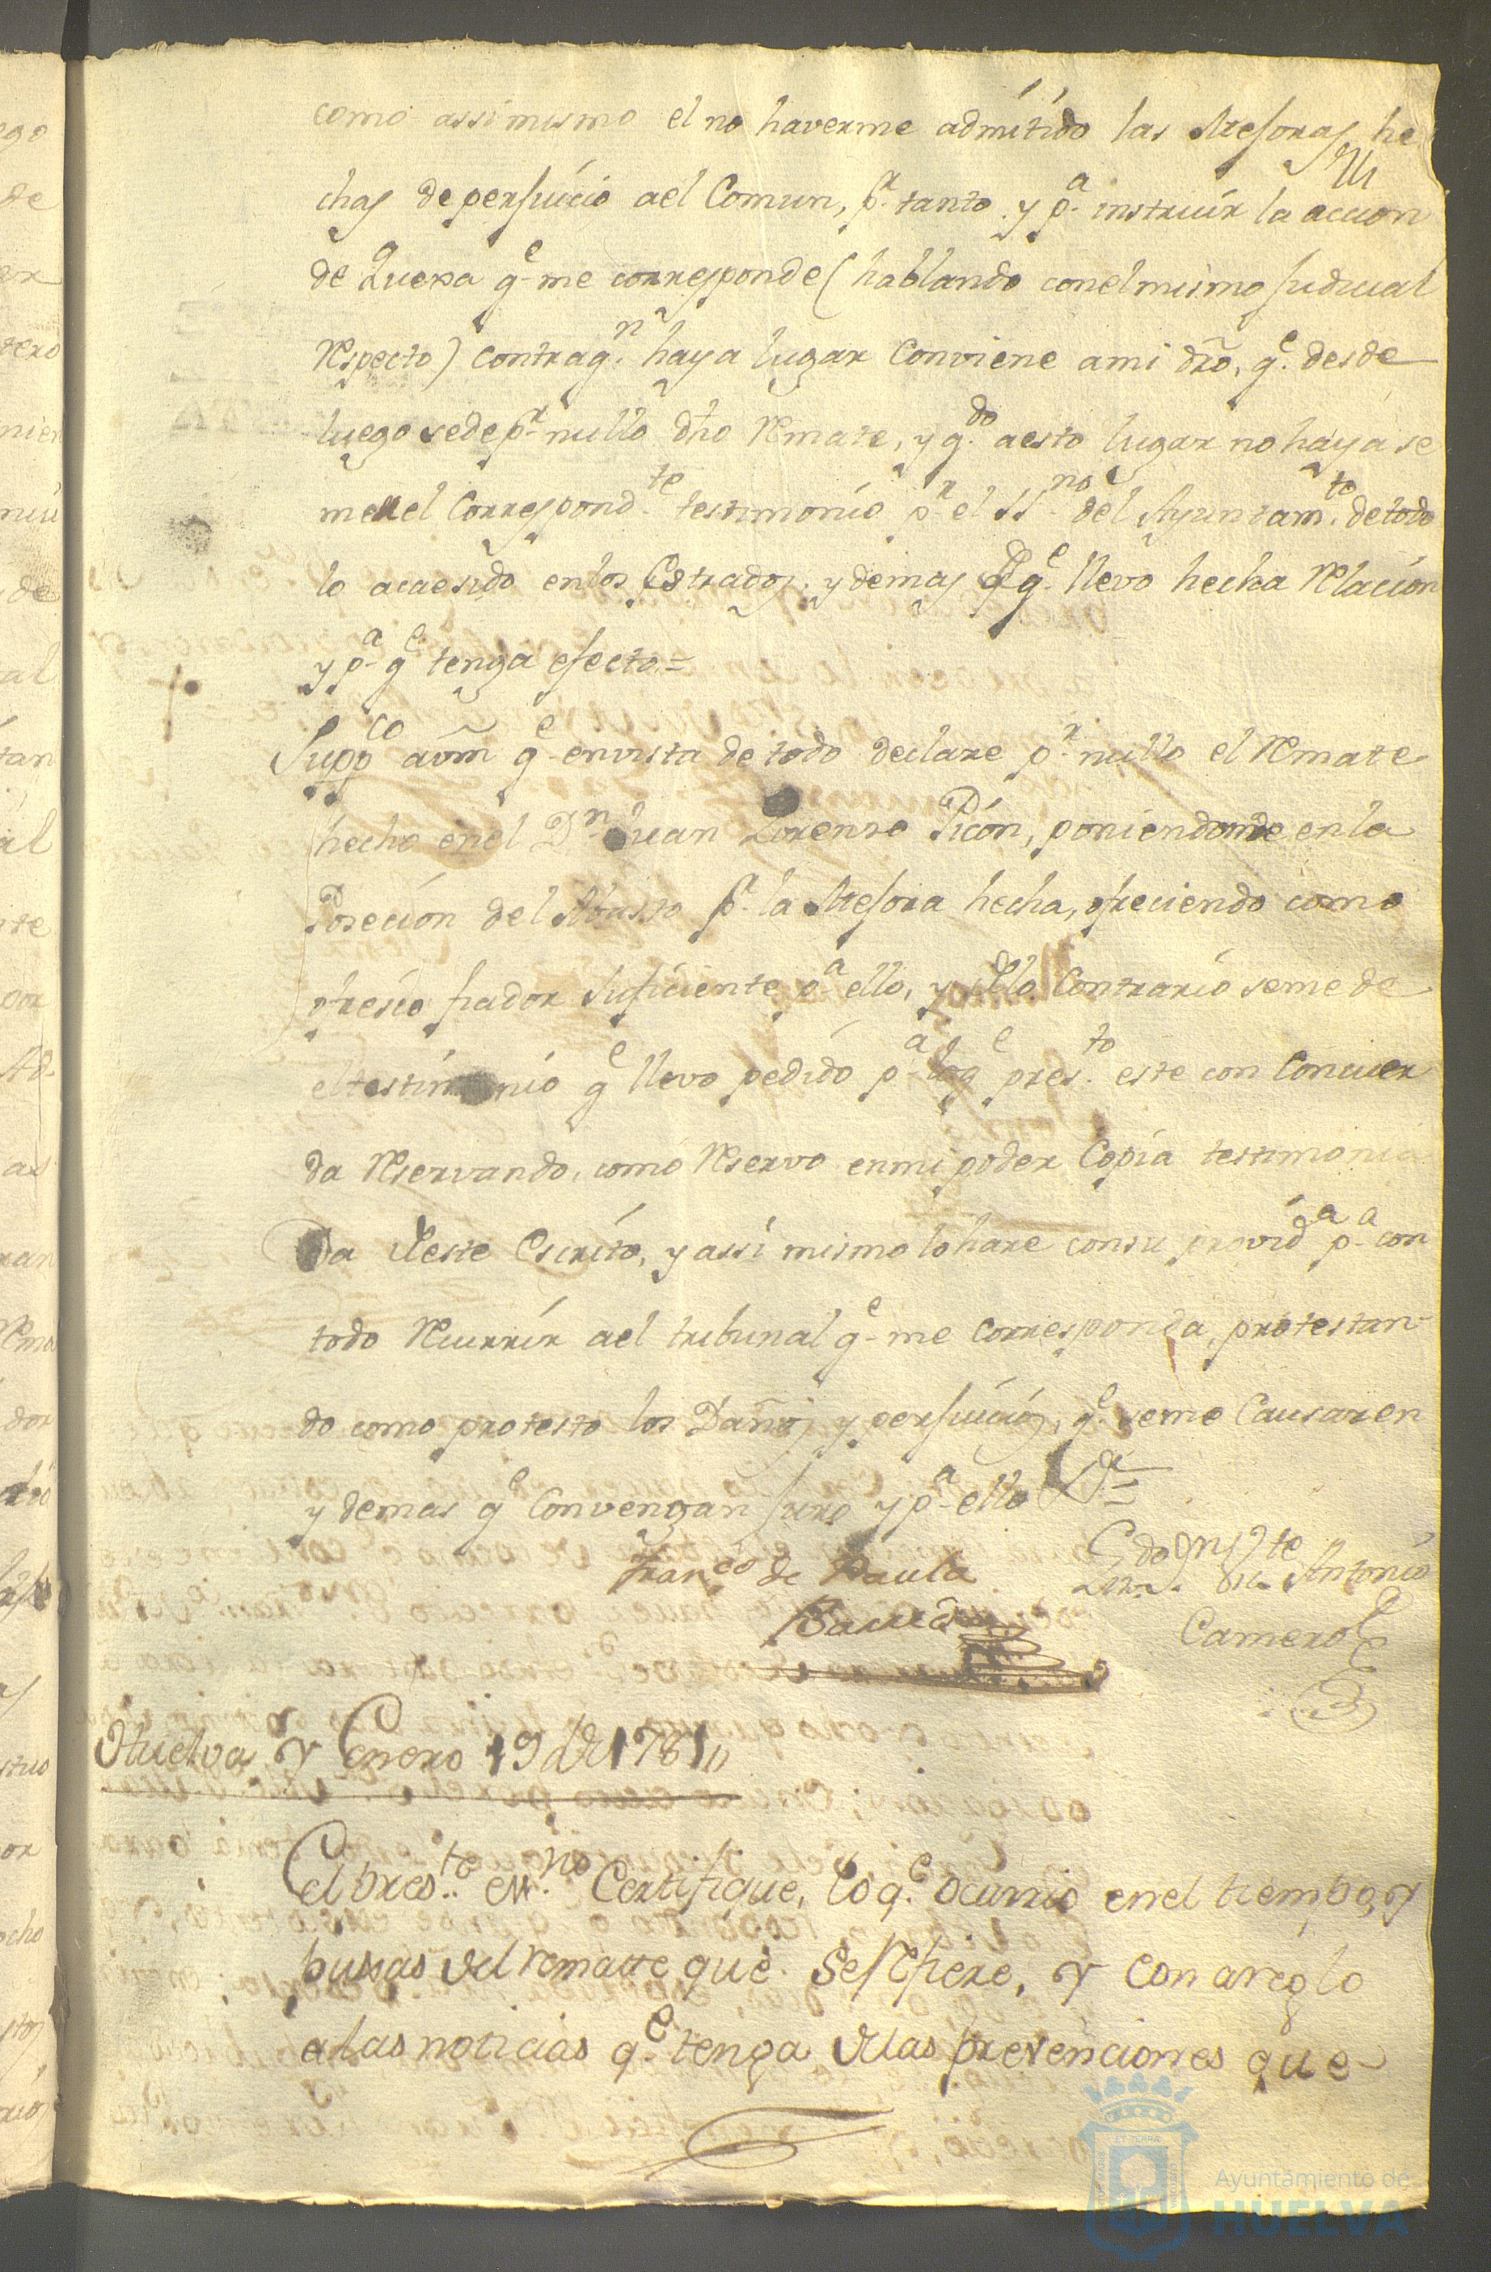 como assimismo el no haverme admitido las Mejoras he
chas de perjuicio ael Comun, pr. tanto y pa. instruir la accion
de Quexa qe. me corresponde (hablando con el mismo judicial
Respecto) contra qn. haya lugar Conviene a mi dro, qe. desde
luego se de pr. nullo dho Remate, y qdo. a esto lugar no haya se
me el Correspondte. testimonio pr. el SSno. del Ayuntamto. de todo
lo acaesido en los Estrados y demas qe. llevo hecha Relacion
y pa. qe. tenga efecto=
Suppco avm qe. en vista de todo declare pr. nullo el Remate
hecho en el Dn. Juan Lorenzo Picón, poniendome en la
Poseción del Abasto pr. la Mejora hecha, ofreciendo como
ofresco fiador suficiente pa. ello, y dlo Contrario se me de
el testimonio qe. llevo pedido pa. lo qe. presto. este con Concuer
da Reservando, como Reservo en mi poder Copia testimonia
da deste Escrito, y assi mismo lo hare con su provida. pa. con
todo Recurrir ael tribunal qe. me corresponda, protestan-
do como protesto los Daños y perjuicios, qe. se me Causaren
y demas qe. Convengan juro y pa. ello
Franco de Paula
Lizdo. Dn. Antonio
Camero
Huelva y Enero 19 de 1781
El preste. essno. Certifique, lo qe. ocurrio en el tiempo, y
pussas del remate que se refiere, y con areglo
a las noticias qe. tenga de las prevenciones que
Ayuntamiento de
HUELVA